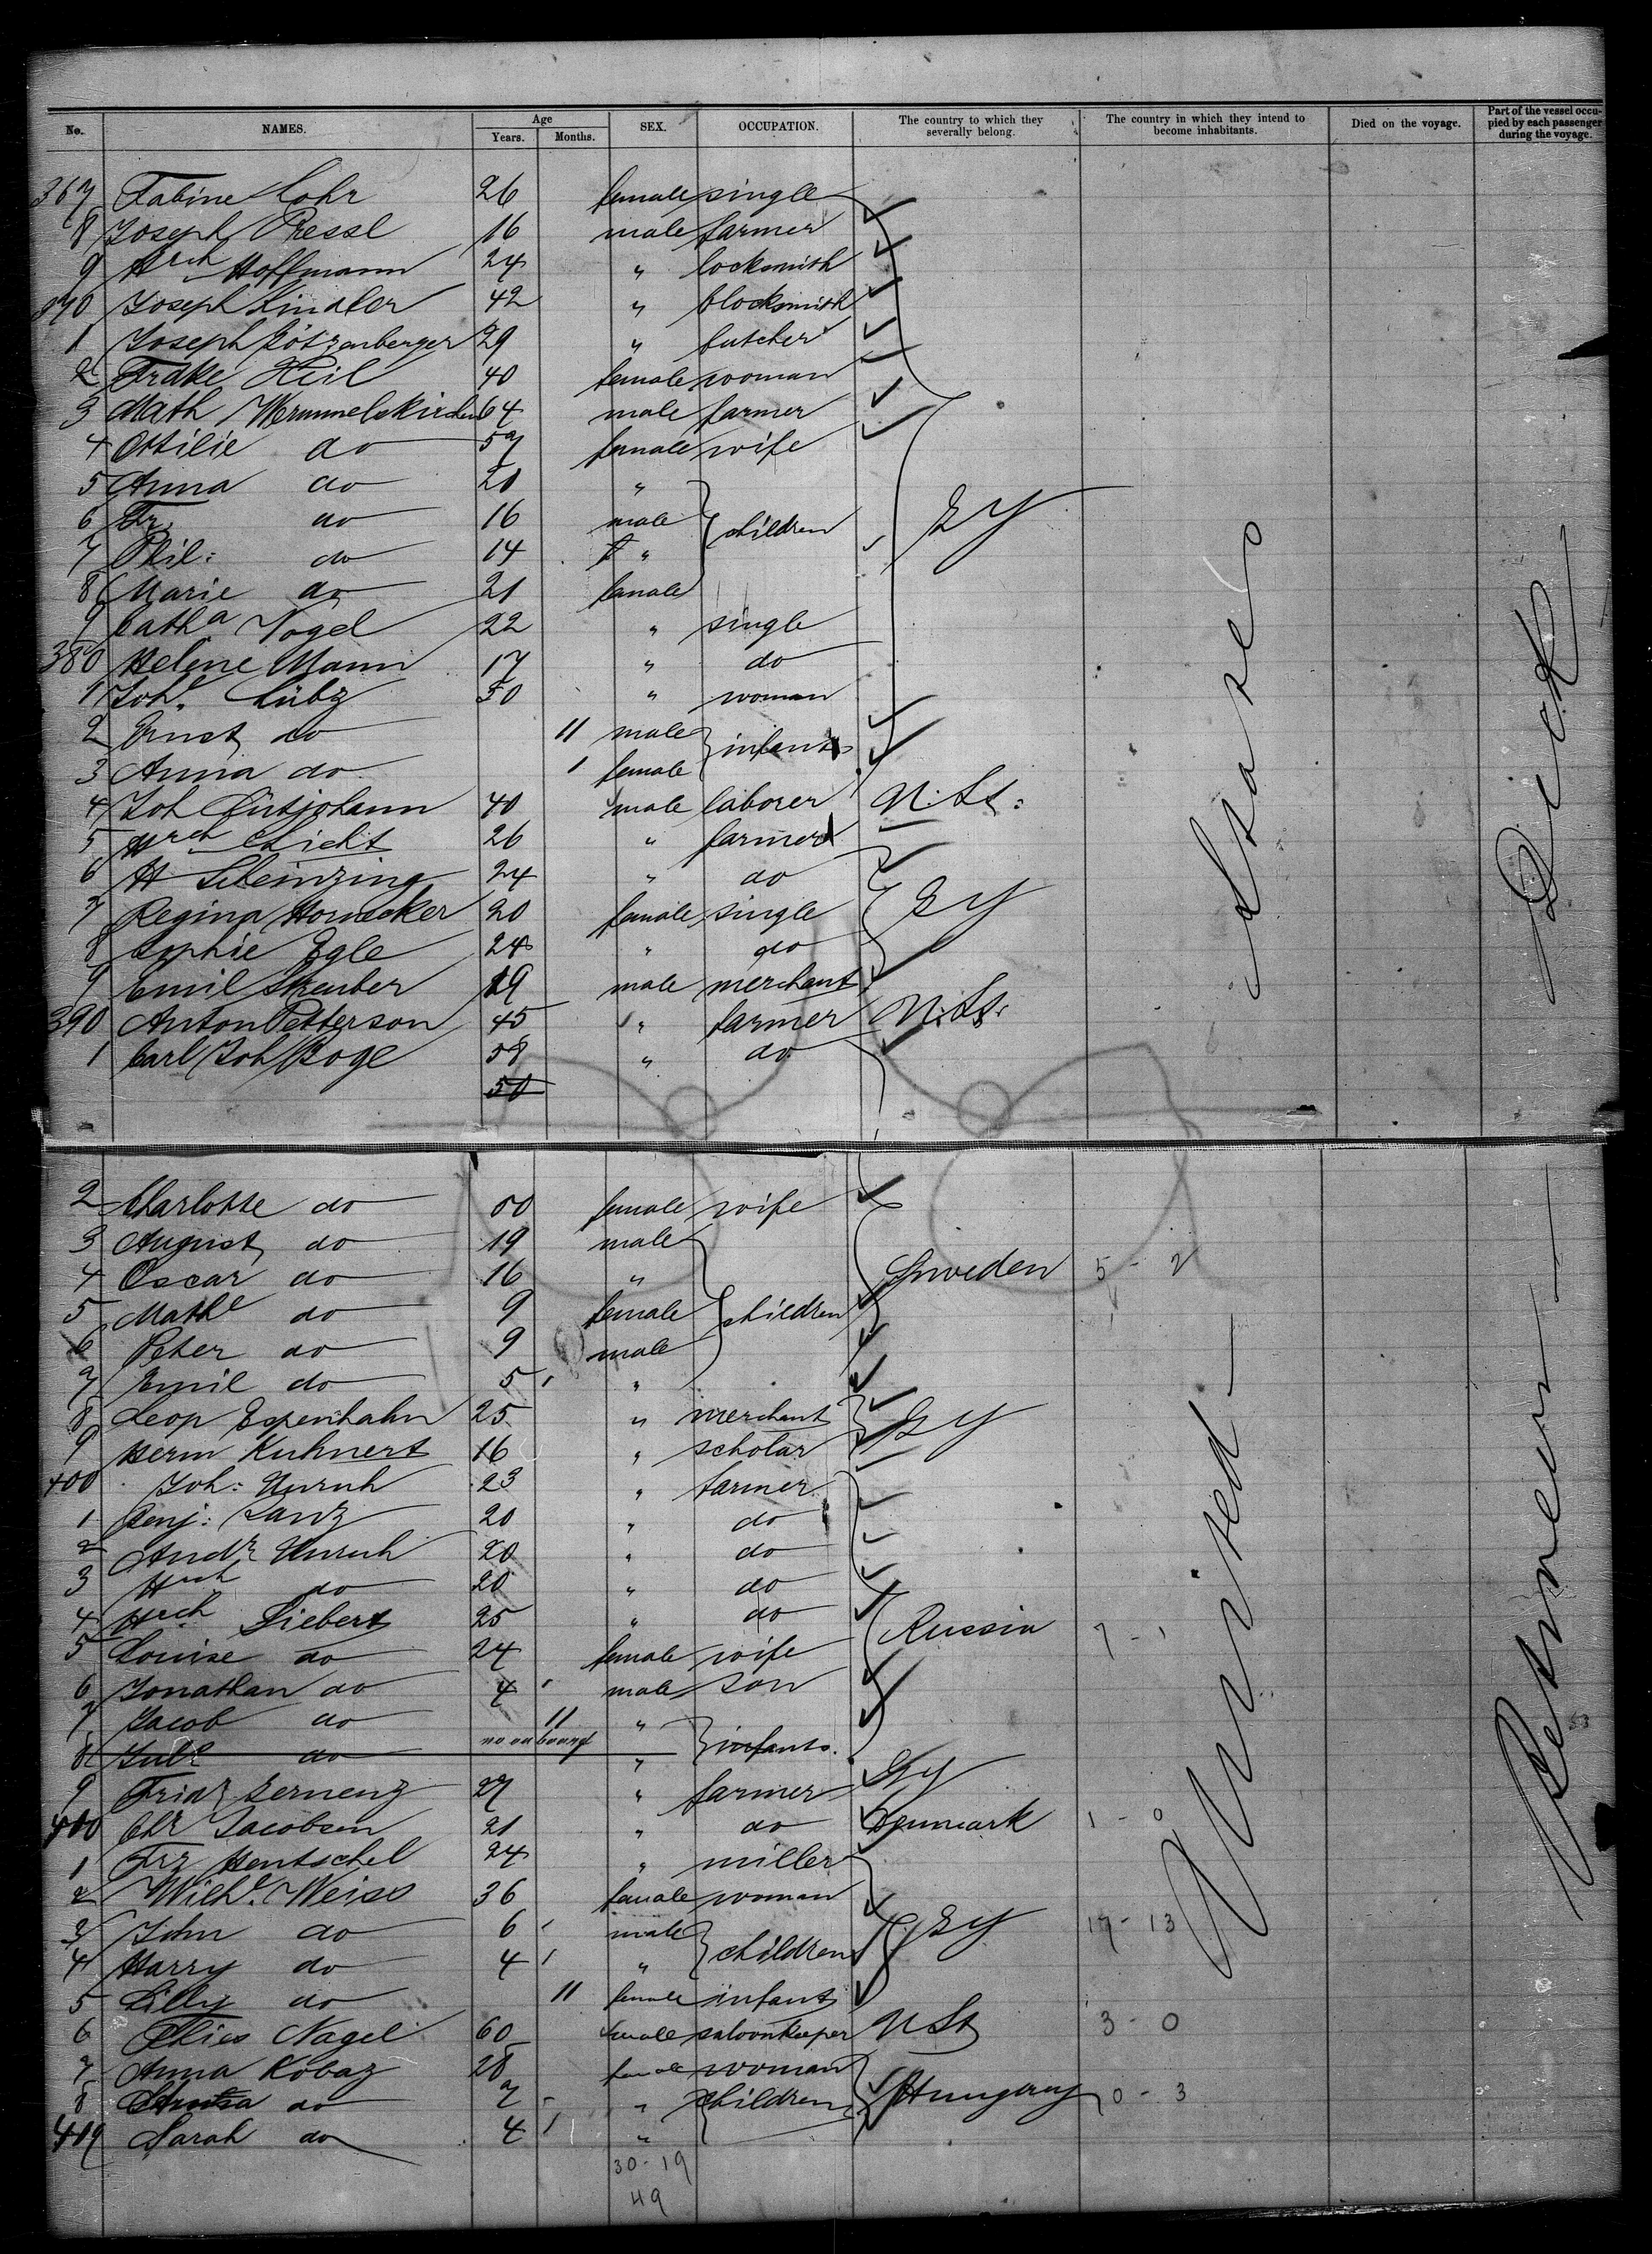 No. NAMES. Age Years. Months. SEX. OCCUPATION. The country to which they severally belong. The country in which they intend to become inhabitants. Died on the voyage. Part of the vessel occupied by each passenger during the voyage.
367 Lohr 26 female single
8 Joseph Pressl 16 male farmer
9 Hrch Hoffmann 24 " locksmith
370 Joseph Lindler 42 " blocksmith
1 Joseph 29 " butcher
2 Heil 40 female woman
3 Math Wermmelskirchen 64 male farmer
4 Ottilie do 57 female wife
5 Anna do 20 "
6 Fr. do 16 male children Gy
7 Phil: do 14 "
8 Marie do 21 female
9 Catha Vogel 22 " single
380 Helene Mann 17 " do
1 Joh. Lübz 30 " woman
2 Ernst do 11 male infants
3 Anna do 1 female
4 Joh Lütjohann 40 male laborer U. St:
5 Hrch Licht 26 " farmer
6 H 24 " do
7 Regina Hornecker 20 female single Gy
8 Sophie Egle 24 " do
9 Emil 19 male merchant
390 Anton Petterson 45 " farmer U. St:
1 Carl Joh Boge 58 " do
50
States
Deck
2 Charlotte do 50 female wife
3 August do 19 male
4 Oscar do 16 " Sweden 5 - 2
5 Mathe do 9 female children
6 Peter do 9 male
7 Emil do 5 "
8 Leop Espenhahn 25 " merchant Gy
9 Herm Kuhnert 16 " scholar
400 Joh: Unruh 23 " farmer
1 Benj: Lanz 20 " do
2 Andr Unruh 20 " do
3 Hrch do 20 " do
4 Hrch Siebert 25 " do
5 Louise do 24 female wife Russia 7 - 1
6 Jonathan do 4 male son
7 Jacob do 11 "
8 Jule do no on board " infants.
9 27 " farmer Gy
400 Chr Jacobsen 21 " do Denmark 1 - 0
1 Frz Hentschel 24 " miller
2 Wilhe. Weiss 36 female woman
3 John do 6 male Gy 17 - 13
4 Harry do 4 " children
5 Lilly do 11 female infant
6 Thies Nagel 60 male saloonkeeper U St 3 - 0
7 Anna Kobaz 28 female woman
8 do 7 " children Hungary 0 - 3
419 Sarah do 4 "
30 - 19
49
United
Between